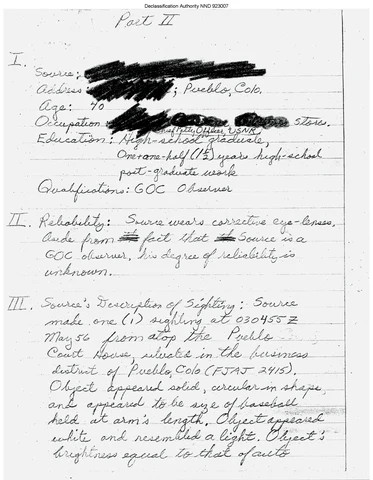 Declassification Authority NND 923007
Part II
I.
Source:
Address: ; Pueblo, Colo.
Age: 40
Occupation: Stores.
Chief Petty Officer, USNR,
Education: High-school graduate,
One-one-half (1½) years high-school
post-graduate work
Qualifications: GOC Observer
II. Reliability: Source wears corrective eye-lenses.
Aside from fact that Source is a
GOC observer, his degree of reliability is
unknown.
III. Source's Description of Sighting: Source
make one (1) sighting at 030455Z
May 56 from atop the Pueblo
Court House, situated in the business
district of Pueblo, Colo (FJAJ 2415).
Object appeared solid, circular in shape,
and appeared to be size of baseball
held at arm's length. Object appeared
white and resembled a light. Object's
brightness equal to that of auto